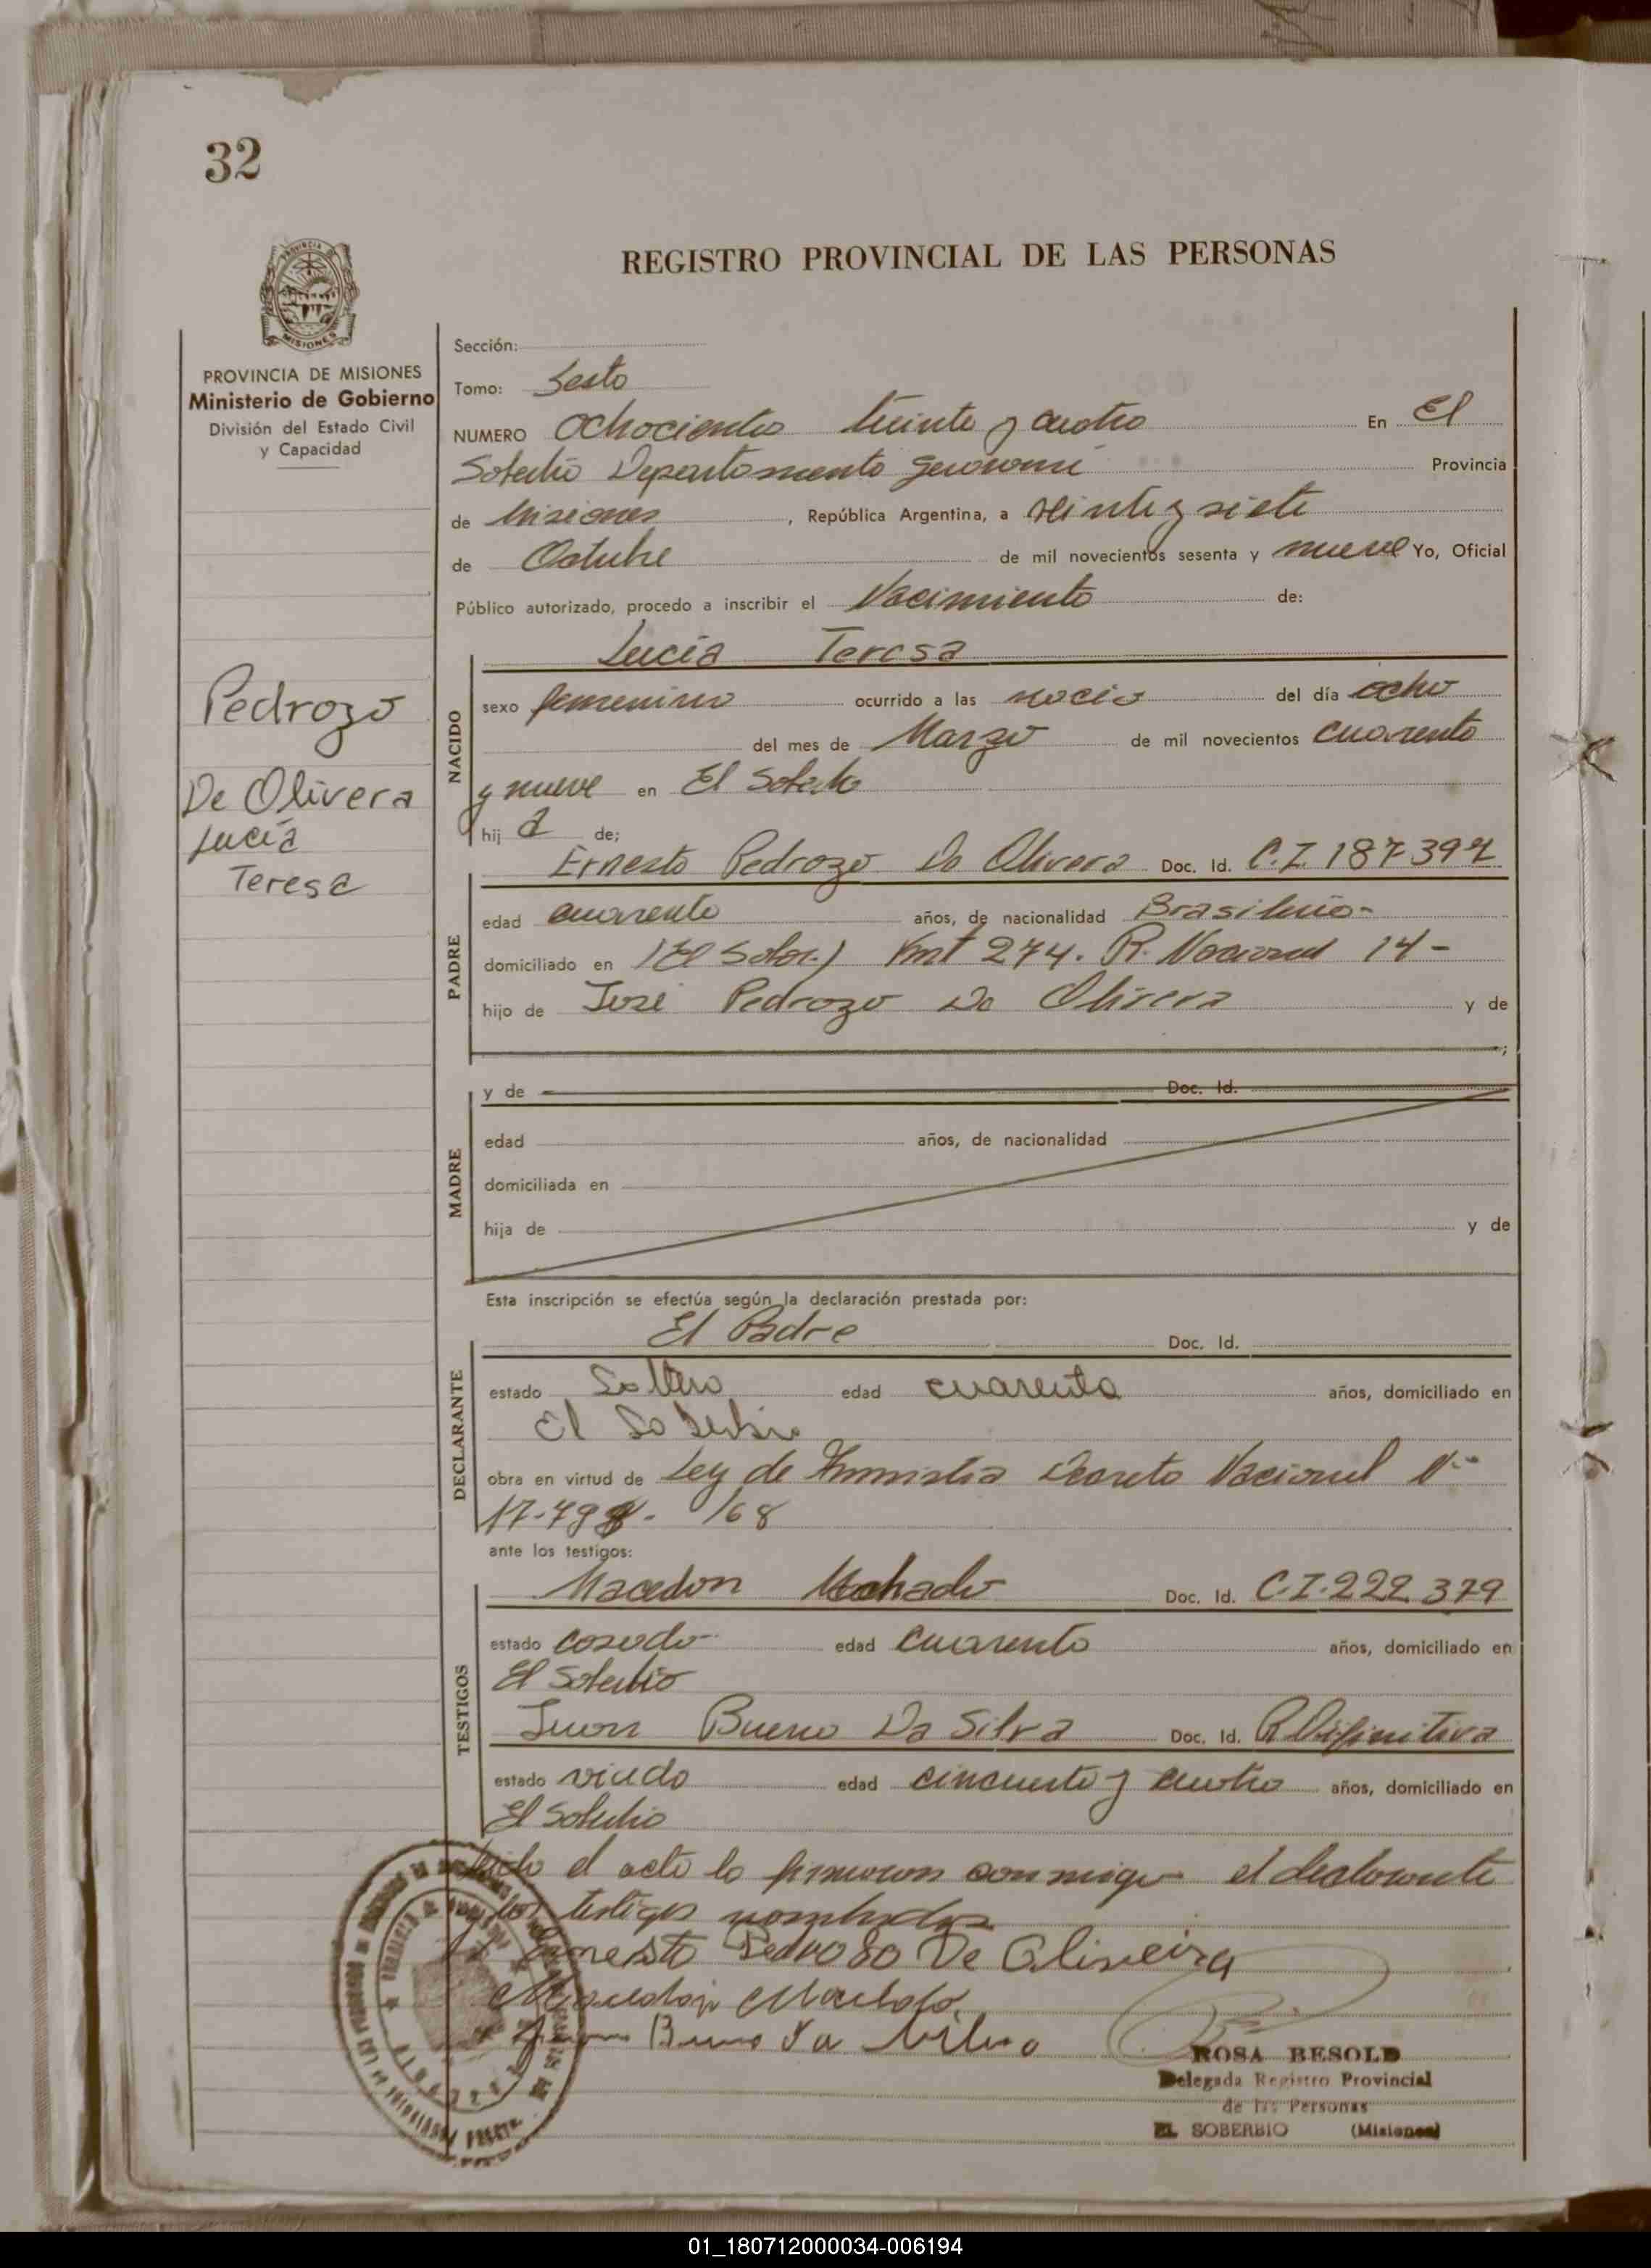 32
PROVINCIA MISIONES
REGISTRO PROVINCIAL DE LAS PERSONAS
PROVINCIA DE MISIONES
Ministerio de Gobierno
División del Estado Civil
y Capacidad
Pedrozo
De Olivera
Lucía
Teresa
Sección:
Tomo: Sesto
NUMERO Ochocientos treinta y cuatro En El
Soberbio Departamento Guaraní Provincia
de Misiones , República Argentina, a veinte y siete
de Octubre de mil novecientos sesenta y nueve Yo, Oficial
Público autorizado, procedo a inscribir el Nacimiento de:
Lucía Teresa
NACIDO
sexo femenino ocurrido a las del día ocho
del mes de Marzo de mil novecientos cuarenta
y nueve en El Soberbio
hij a de;
Ernesto Pedrozo De Olivera Doc. Id. C.I. 187397
PADRE
edad cuarenta años, de nacionalidad Brasileño-
domiciliado en (El Sober.) Kmt 274. R. Nacional 14-
hijo de José Pedrozo De Olivera y de
;
MADRE
y de Doc. Id.
edad años, de nacionalidad
domiciliada en
hija de y de
Esta inscripción se efectúa según la declaración prestada por:
El Padre Doc. Id.
DECLARANTE
estado Soltero edad cuarenta años, domiciliado en
El Soberbio
obra en virtud de Ley de Amnistia Decreto Nacional Nº
/68
ante los testigos:
TESTIGOS
Macedon Machado Doc. Id. C.I. 222.379
estado casado edad cuarenta años, domiciliado en
El Soberbio
Juan Bueno Da Silva Doc. Id. R Difinitiva
estado viudo edad cincuenta y cuatro años, domiciliado en
El Soberbio
el acta la firmaron conmigo el declarante
y los testigos nombrados
Ernesto Pedroso De Oliveira
Machado
Bueno da Silva
ROSA BESOLD
Delegada Registro Provincial
de las Personas
EL SOBERBIO (Misiones)
01_180712000034-006194